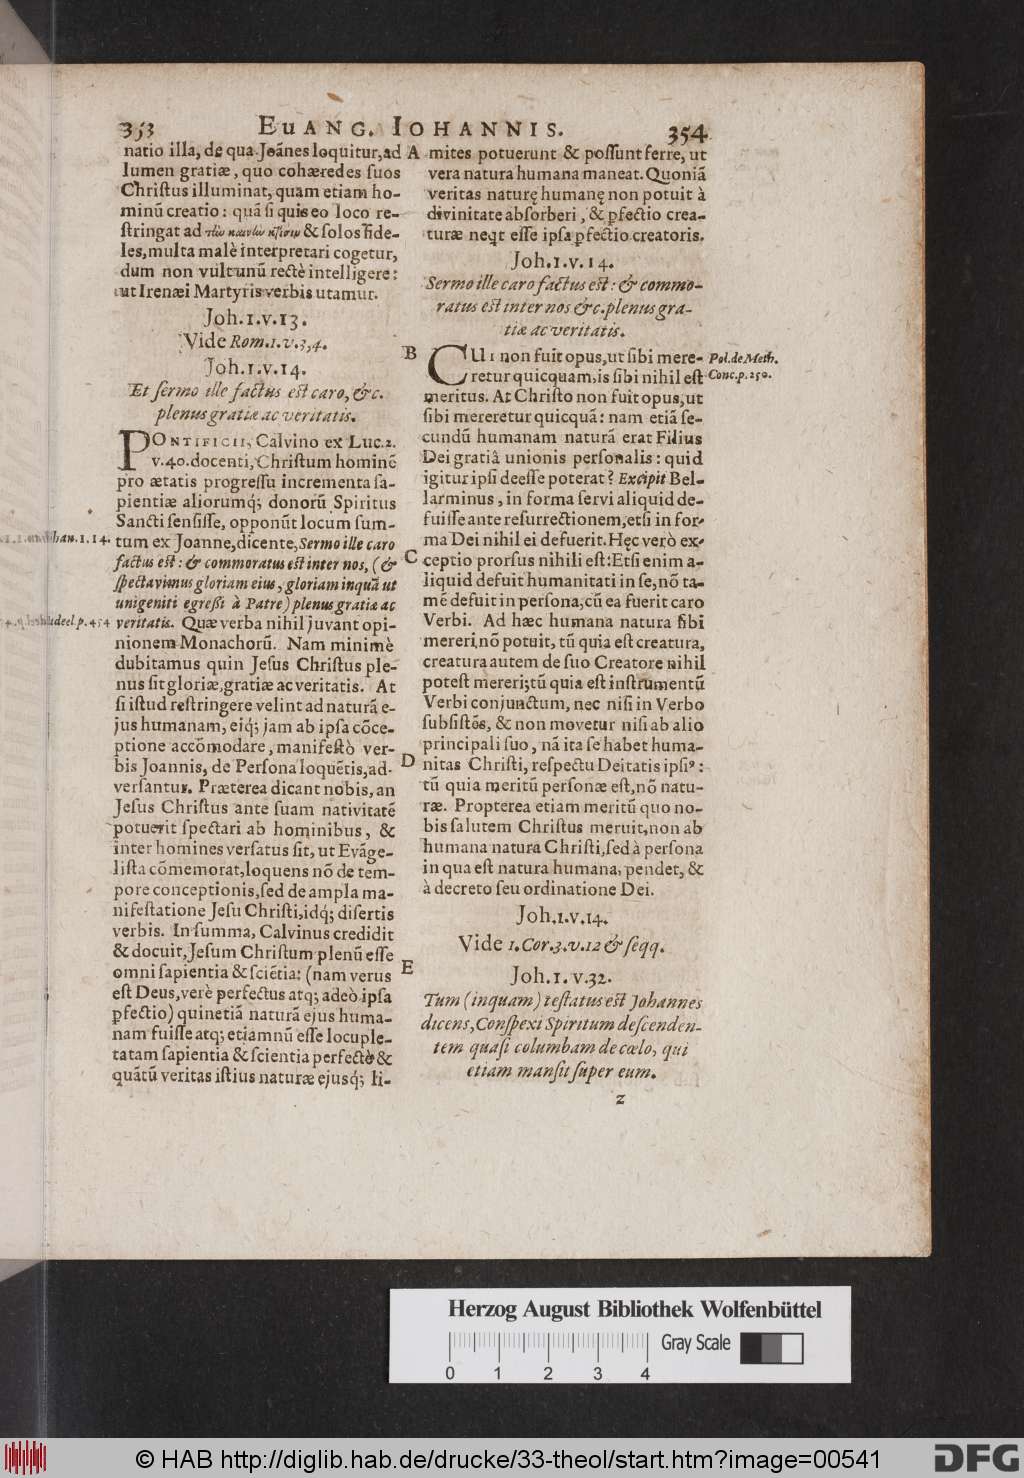 353
EUANG. IOHANNIS.
354
natio illa, de qua Joānes loquitur, ad
lumen gratiæ, quo cohæredes suos
Christus illuminat, quam etiam ho-
minū creatio: quā si quis eo loco re-
stringat ad τὴν καινὴν κτίσιν & solos fide-
les, multa malè interpretari cogetur,
dum non vult unū rectè intelligere:
ut Irenæi Martyris verbis utamur.
Joh.1.v.13.
Vide Rom.1.v.3,4.
Joh.1.v.14.
Et sermo ille factus est caro, &c.
plenus gratiæ ac veritatis.
PONTIFICII, Calvino ex Luc.2.
v.40. docenti, Christum hominē
pro ætatis progressu incrementa sa-
pientiæ aliorumq́; donorū Spiritus
Sancti sensisse, opponūt locum sum-
tum ex Joanne, dicente, Sermo ille caro
factus est: & commoratus est inter nos, (&
spectavimus gloriam eius, gloriam inquā ut
unigeniti egreßi à Patre) plenus gratiæ ac
veritatis. Quæ verba nihil juvant opi-
nionem Monachorū. Nam minimè
dubitamus quin Jesus Christus ple-
nus sit gloriæ, gratiæ ac veritatis. At
si istud restringere velint ad naturā e-
jus humanam, eiq́; jam ab ipsa cōce-
ptione accōmodare, manifestò ver-
bis Joannis, de Persona loquētis, ad-
versantur. Præterea dicant nobis, an
Jesus Christus ante suam nativitatē
potuerit spectari ab hominibus, &
inter homines versatus sit, ut Evāge-
lista cōmemorat, loquens nō de tem-
pore conceptionis, sed de ampla ma-
nifestatione Jesu Christi, idq́; disertis
verbis. In summa, Calvinus credidit
& docuit, Jesum Christum plenū esse
omni sapientia & sciētia: (nam verus
est Deus, verè perfectus atq; adeò ipsa
ꝑfectio) quinetiā naturā ejus huma-
nam fuisse atq; etiamnū esse locuple-
tatam sapientia & scientia perfectè &
quātū veritas istius naturæ ejusq́; li-
han.1.14.
deel.p.454
A
B
C
D
E
mites potuerunt & possunt ferre, ut
vera natura humana maneat. Quoniā
veritas naturę humanę non potuit à
divinitate absorberi, & ꝑfectio crea-
turæ neqt esse ipsa ꝑfectio creatoris.
Joh.1.v.14.
Sermo ille caro factus est: & commo-
ratus est inter nos &c. plenus gra-
tiæ ac veritatis.
CUI non fuit opus, ut sibi mere-
retur quicquam, is sibi nihil est
meritus. At Christo non fuit opus, ut
sibi mereretur quicquā: nam etiā se-
cundū humanam naturā erat Filius
Dei gratiâ unionis personalis: quid
igitur ipsi deesse poterat? Excipit Bel-
larminus, in forma servi aliquid de-
fuisse ante resurrectionem, etsi in for-
ma Dei nihil ei defuerit. Hęc verò ex-
ceptio prorsus nihili est: Etsi enim a-
liquid defuit humanitati in se, nō ta-
mē defuit in persona, cū ea fuerit caro
Verbi. Ad hæc humana natura sibi
mereri nō potuit, tū quia est creatura,
creatura autem de suo Creatore nihil
potest mereri; tū quia est instrumentū
Verbi conjunctum, nec nisi in Verbo
subsistēs, & non movetur nisi ab alio
principali suo, nā ita se habet huma-
nitas Christi, respectu Deitatis ipsiꝰ:
tū quia meritū personæ est, nō natu-
ræ. Propterea etiam meritū quo no-
bis salutem Christus meruit, non ab
humana natura Christi, sed à persona
in qua est natura humana, pendet, &
à decreto seu ordinatione Dei.
Joh.1.v.14.
Vide 1.Cor.3.v.12 & seqq.
Joh.1.v.32.
Tum (inquam) testatus est Johannes
dicens, Conspexi Spiritum descenden-
tem quasi columbam de cœlo, qui
etiam mansit super eum.
z
Pol.de Meth.
Conc.p.250.
Herzog August Bibliothek Wolfenbüttel
Gray Scale
0 1 2 3 4
© HAB http://diglib.hab.de/drucke/33-theol/start.htm?image=00541
DFG